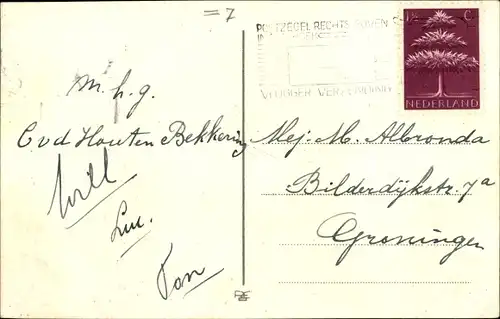 = 7
POSTZEGEL RECHTS BOVEN
VLUGGER VERZENDING
C
NEDERLAND
M. h. g.
C v d Houten Bekkering
Will
Luc.
Ton
Mej. M. Albronda
Bilderdijkstr. 7a
Groningen